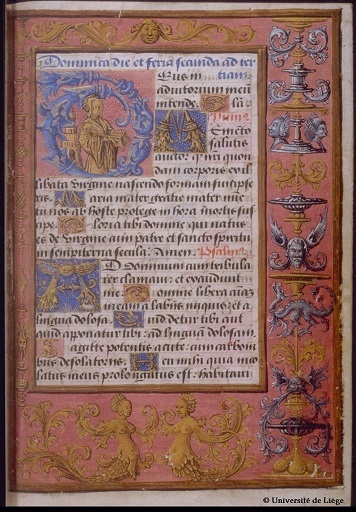 Dominica die et feria secunda ad ter
Deus in tiam
adiutorium meū
intende. Glā
Memēto
salutis
auctor qui quon
dam corporis ex il
libata virgine nascendo formam sumpse
ris. Maria mater gratie mater mie
tu nos ab hoste protege in hora mortis susci
pe. Gloria tibi domine qui natus
es de virgine cum patre et sancto spiritu
in sempiterna secula. Amen. Psalmus
Ad Dominum cum tribula
rer clamaui: et exaudiuit
me. Domine libera aīaz
meā a labiis iniquis: et a
lingua dolosa. Quid detur tibi aut
quid apponatur tibi: ad linguā dolosam.
Sagitte potentis acute: cum carbom
bus desolatoriis. Heu mihi quia inco
latus meus prolongatus est: habitaui
© Université de Liège